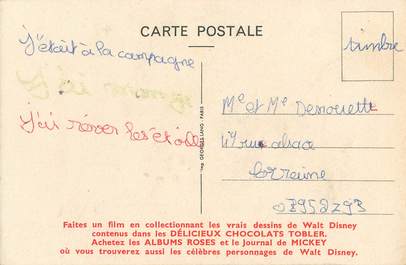 CARTE POSTALE
timbre
J'était à la campagne
J'ai
J'ai rêver les étoil
Imp. GEORGES LANG - PARIS
Me et Me Demouette
49 rue alsace
lorraine
07952293
Faites un film en collectionnant les vrais dessins de Walt Disney
contenus dans les DÉLICIEUX CHOCOLATS TOBLER.
Achetez les ALBUMS ROSES et le Journal de MICKEY
où vous trouverez aussi les célèbres personnages de Walt Disney.